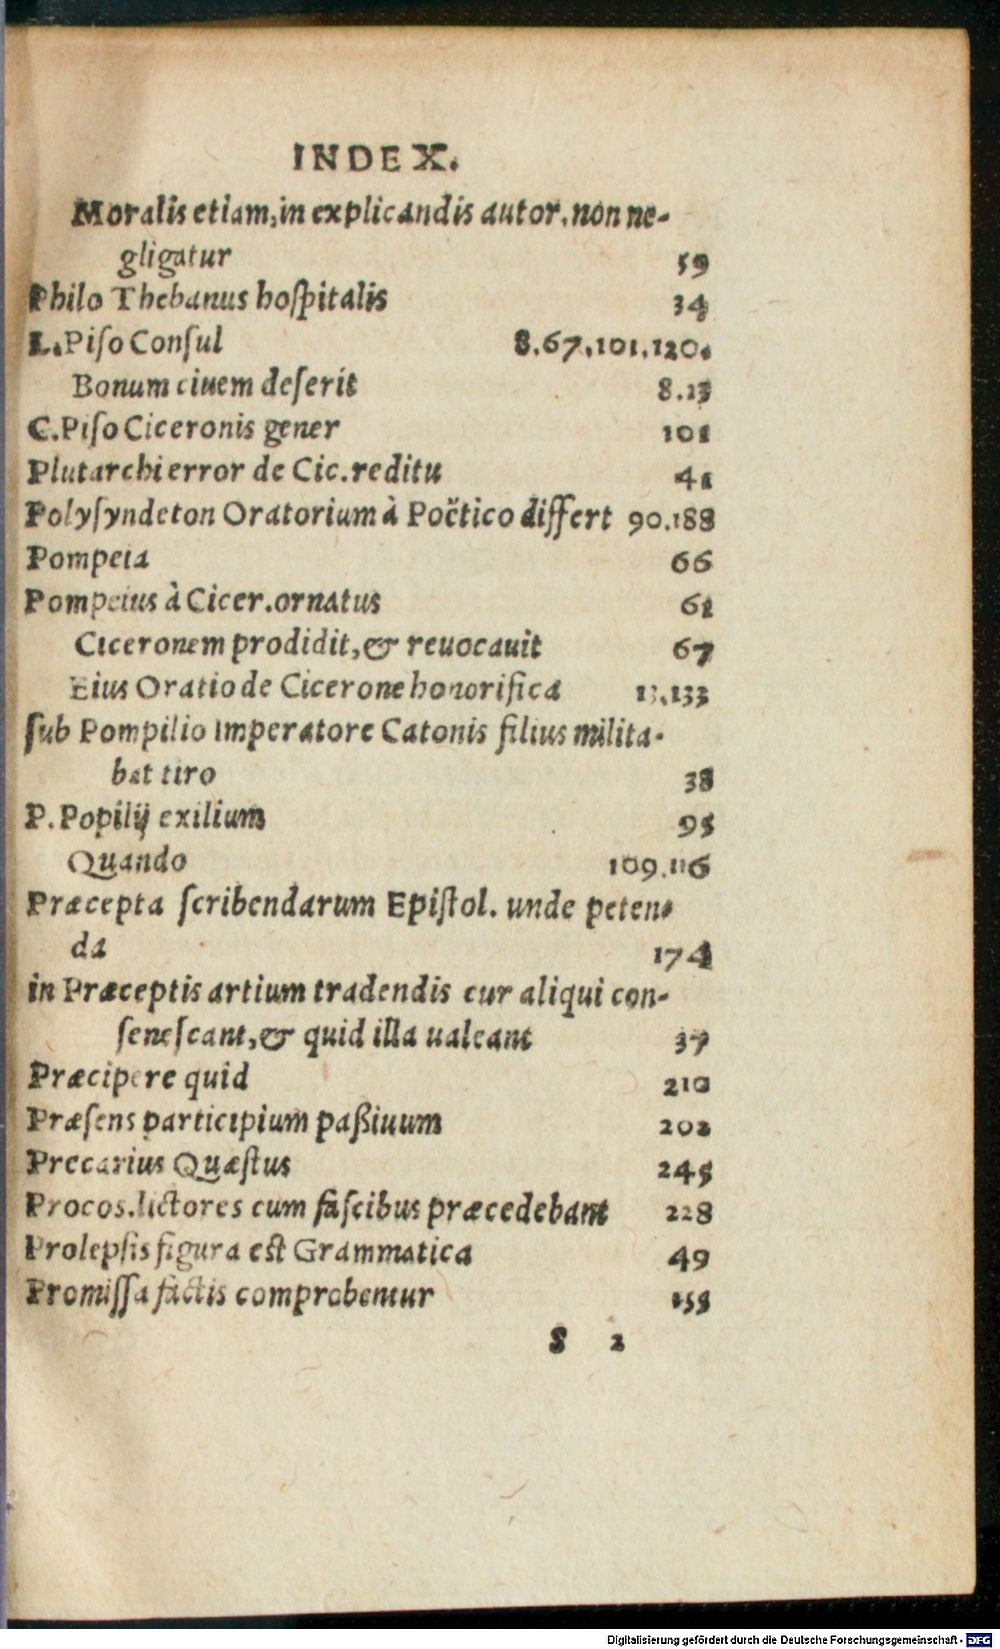 INDEX.
Moralis etiam, in explicandis autor. non ne-
gligatur 59
Philo Thebanus hoſpitalis 34
L. Piſo Conſul 8.67.101.120.
Bonum ciuem deſerit 8.13
C. Piſo Ciceronis gener 101
Plutarchi error de Cic. reditu 41
Polyſyndeton Oratorium à Poëtico differt 90.188
Pompeia 66
Pompeius à Cicer. ornatus 61
Ciceronem prodidit, & reuocauit 67
Eius Oratio de Cicerone honorifica 13.133
ſub Pompilio Imperatore Catonis filius milita-
bat tiro 38
P. Popilij exilium 95
Quando 109.116
Præcepta ſcribendarum Epiſtol. unde peten-
da 174
in Præceptis artium tradendis cur aliqui con-
ſeneſcant, & quid illa ualeant 37
Præcipere quid 210
Præſens participium paßiuum 202
Precarius Quæſtus 245
Procos. lictores cum faſcibus præcedebant 228
Prolepſis figura eſt Grammatica 49
Promiſſa factis comprobentur 155
S 2
Digitalisierung gefördert durch die Deutsche Forschungsgemeinschaft - DFG